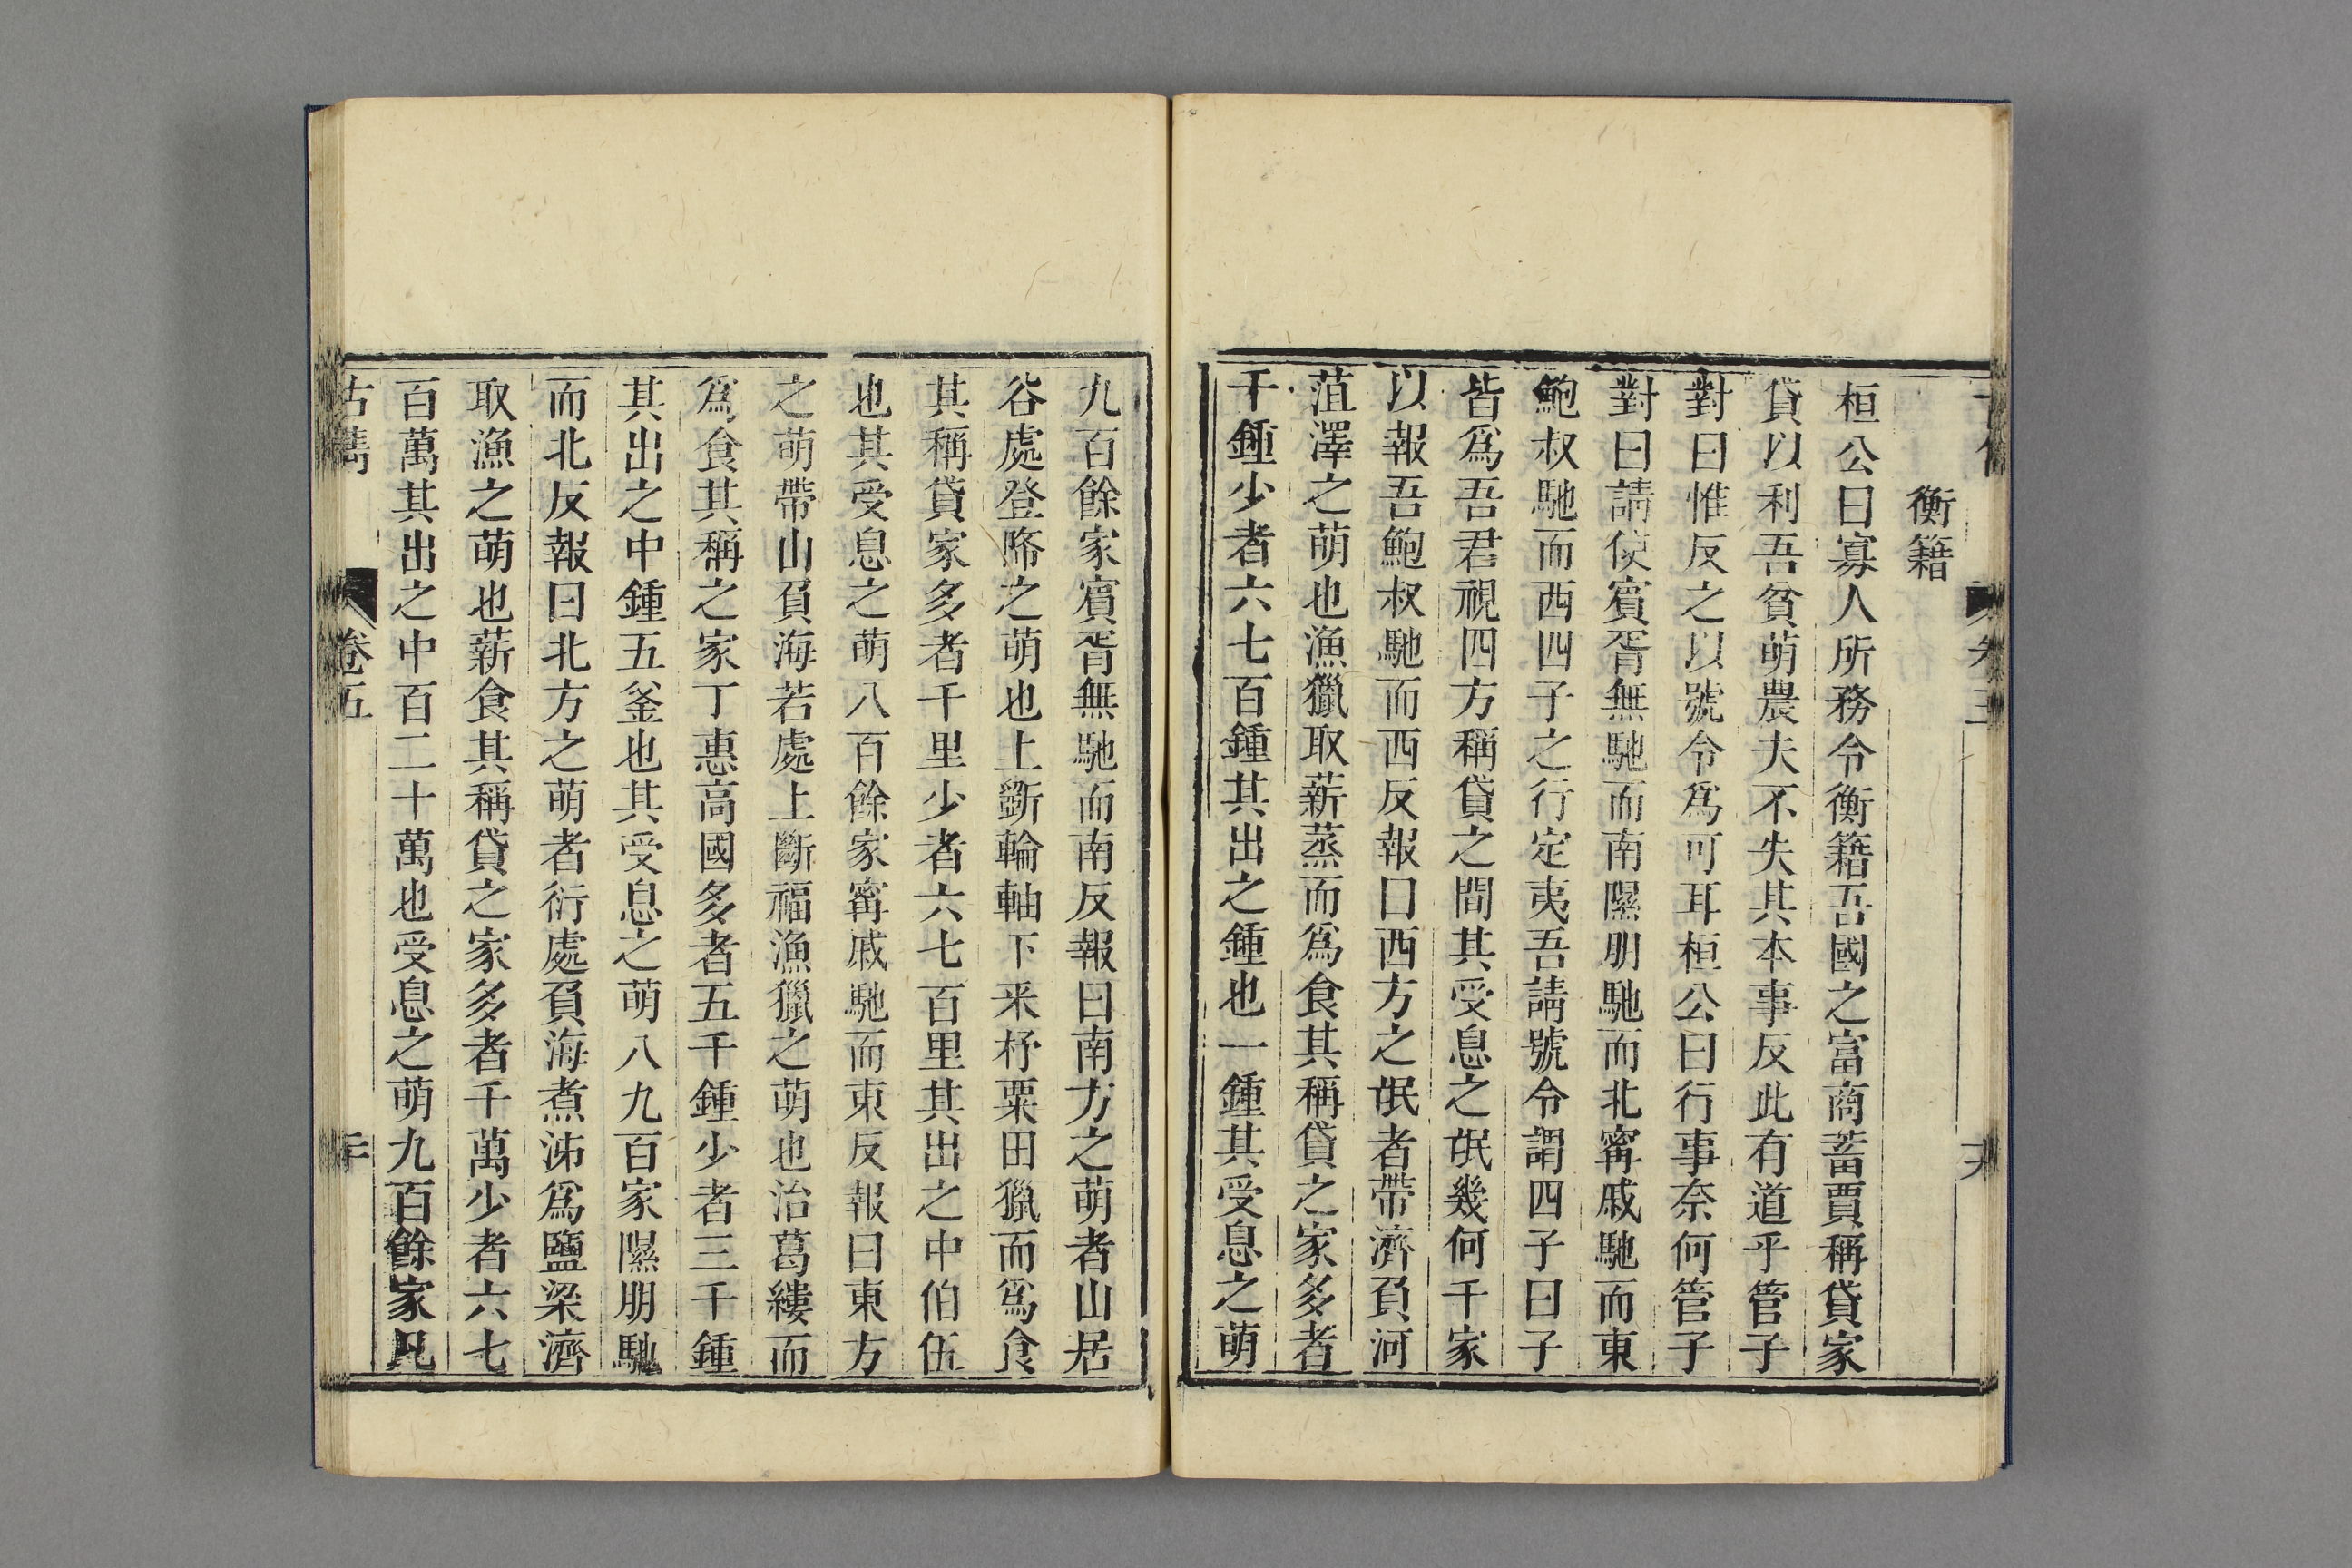 衡籍
桓公曰寡人所務令衡籍吾國之富商蓄賈稱貸家
貸以利吾貧萌農夫不失其本事反此有道乎管子
對曰惟反之以號令爲可耳桓公曰行事奈何管子
對曰請使賓胥無馳而南隰朋馳而北甯戚馳而東
鮑叔馳而西四子之行定夷吾請號令謂四子曰子
皆爲吾君視四方稱貸之間其受息之氓幾何千家
以報吾鮑叔馳而西反報曰西方之氓者帶濟負河
菹澤之萌也漁獵取薪蒸而爲食其稱貸之家多者
千鍾少者六七百鍾其出之鍾也一鍾其受息之萌
九百餘家賓胥無馳而南反報曰南方之萌者山居
谷處登降之萌也上斵輪軸下采杼粟田獵而爲食
其稱貸家多者千里少者六七百里其出之中伯伍
也其受息之萌八百餘家甯戚馳而東反報曰東方
之萌帶山負海若處上斷福漁獵之萌也治葛縷而
爲食其稱之家丁惠高國多者五千鍾少者三千鍾
其出之中鍾五釜也其受息之萌八九百家隰朋馳
而北反報曰北方之萌者衍處負海煮泲爲鹽梁濟
取漁之萌也薪食其稱貸之家多者千萬少者六七
百萬其出之中百二十萬也受息之萌九百餘家凡
古雋 卷五 二十